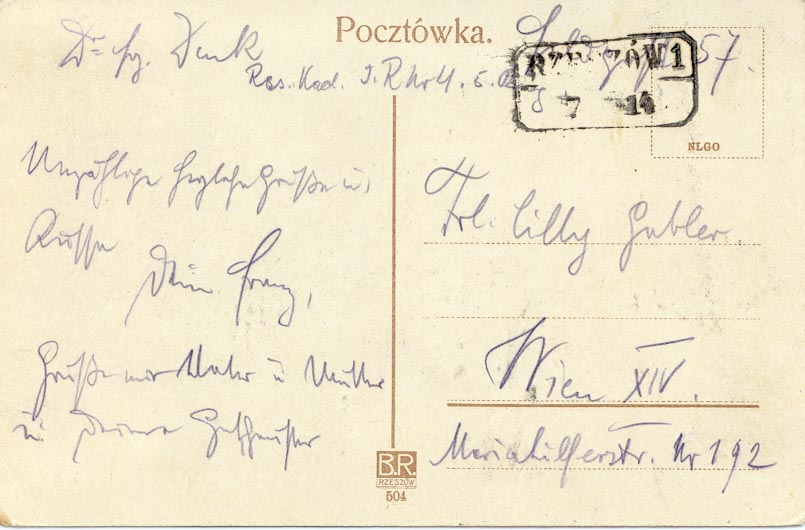 Pocztówka.
Dr Fz. Denk
Feldpost 57.
Res. Kad. I. R. No 4.
RZESZÓW 1
7 14
NLGO
Unzählige herzliche Grüße u.
Küsse
Dein Franz,
Grüße mir Vater u Mutter
u Deine Geschwister
Frl. Cilly Gabler.
Wien XIV.
Mariahilferstr. Nr 192
B.R.
RZESZÓW
504